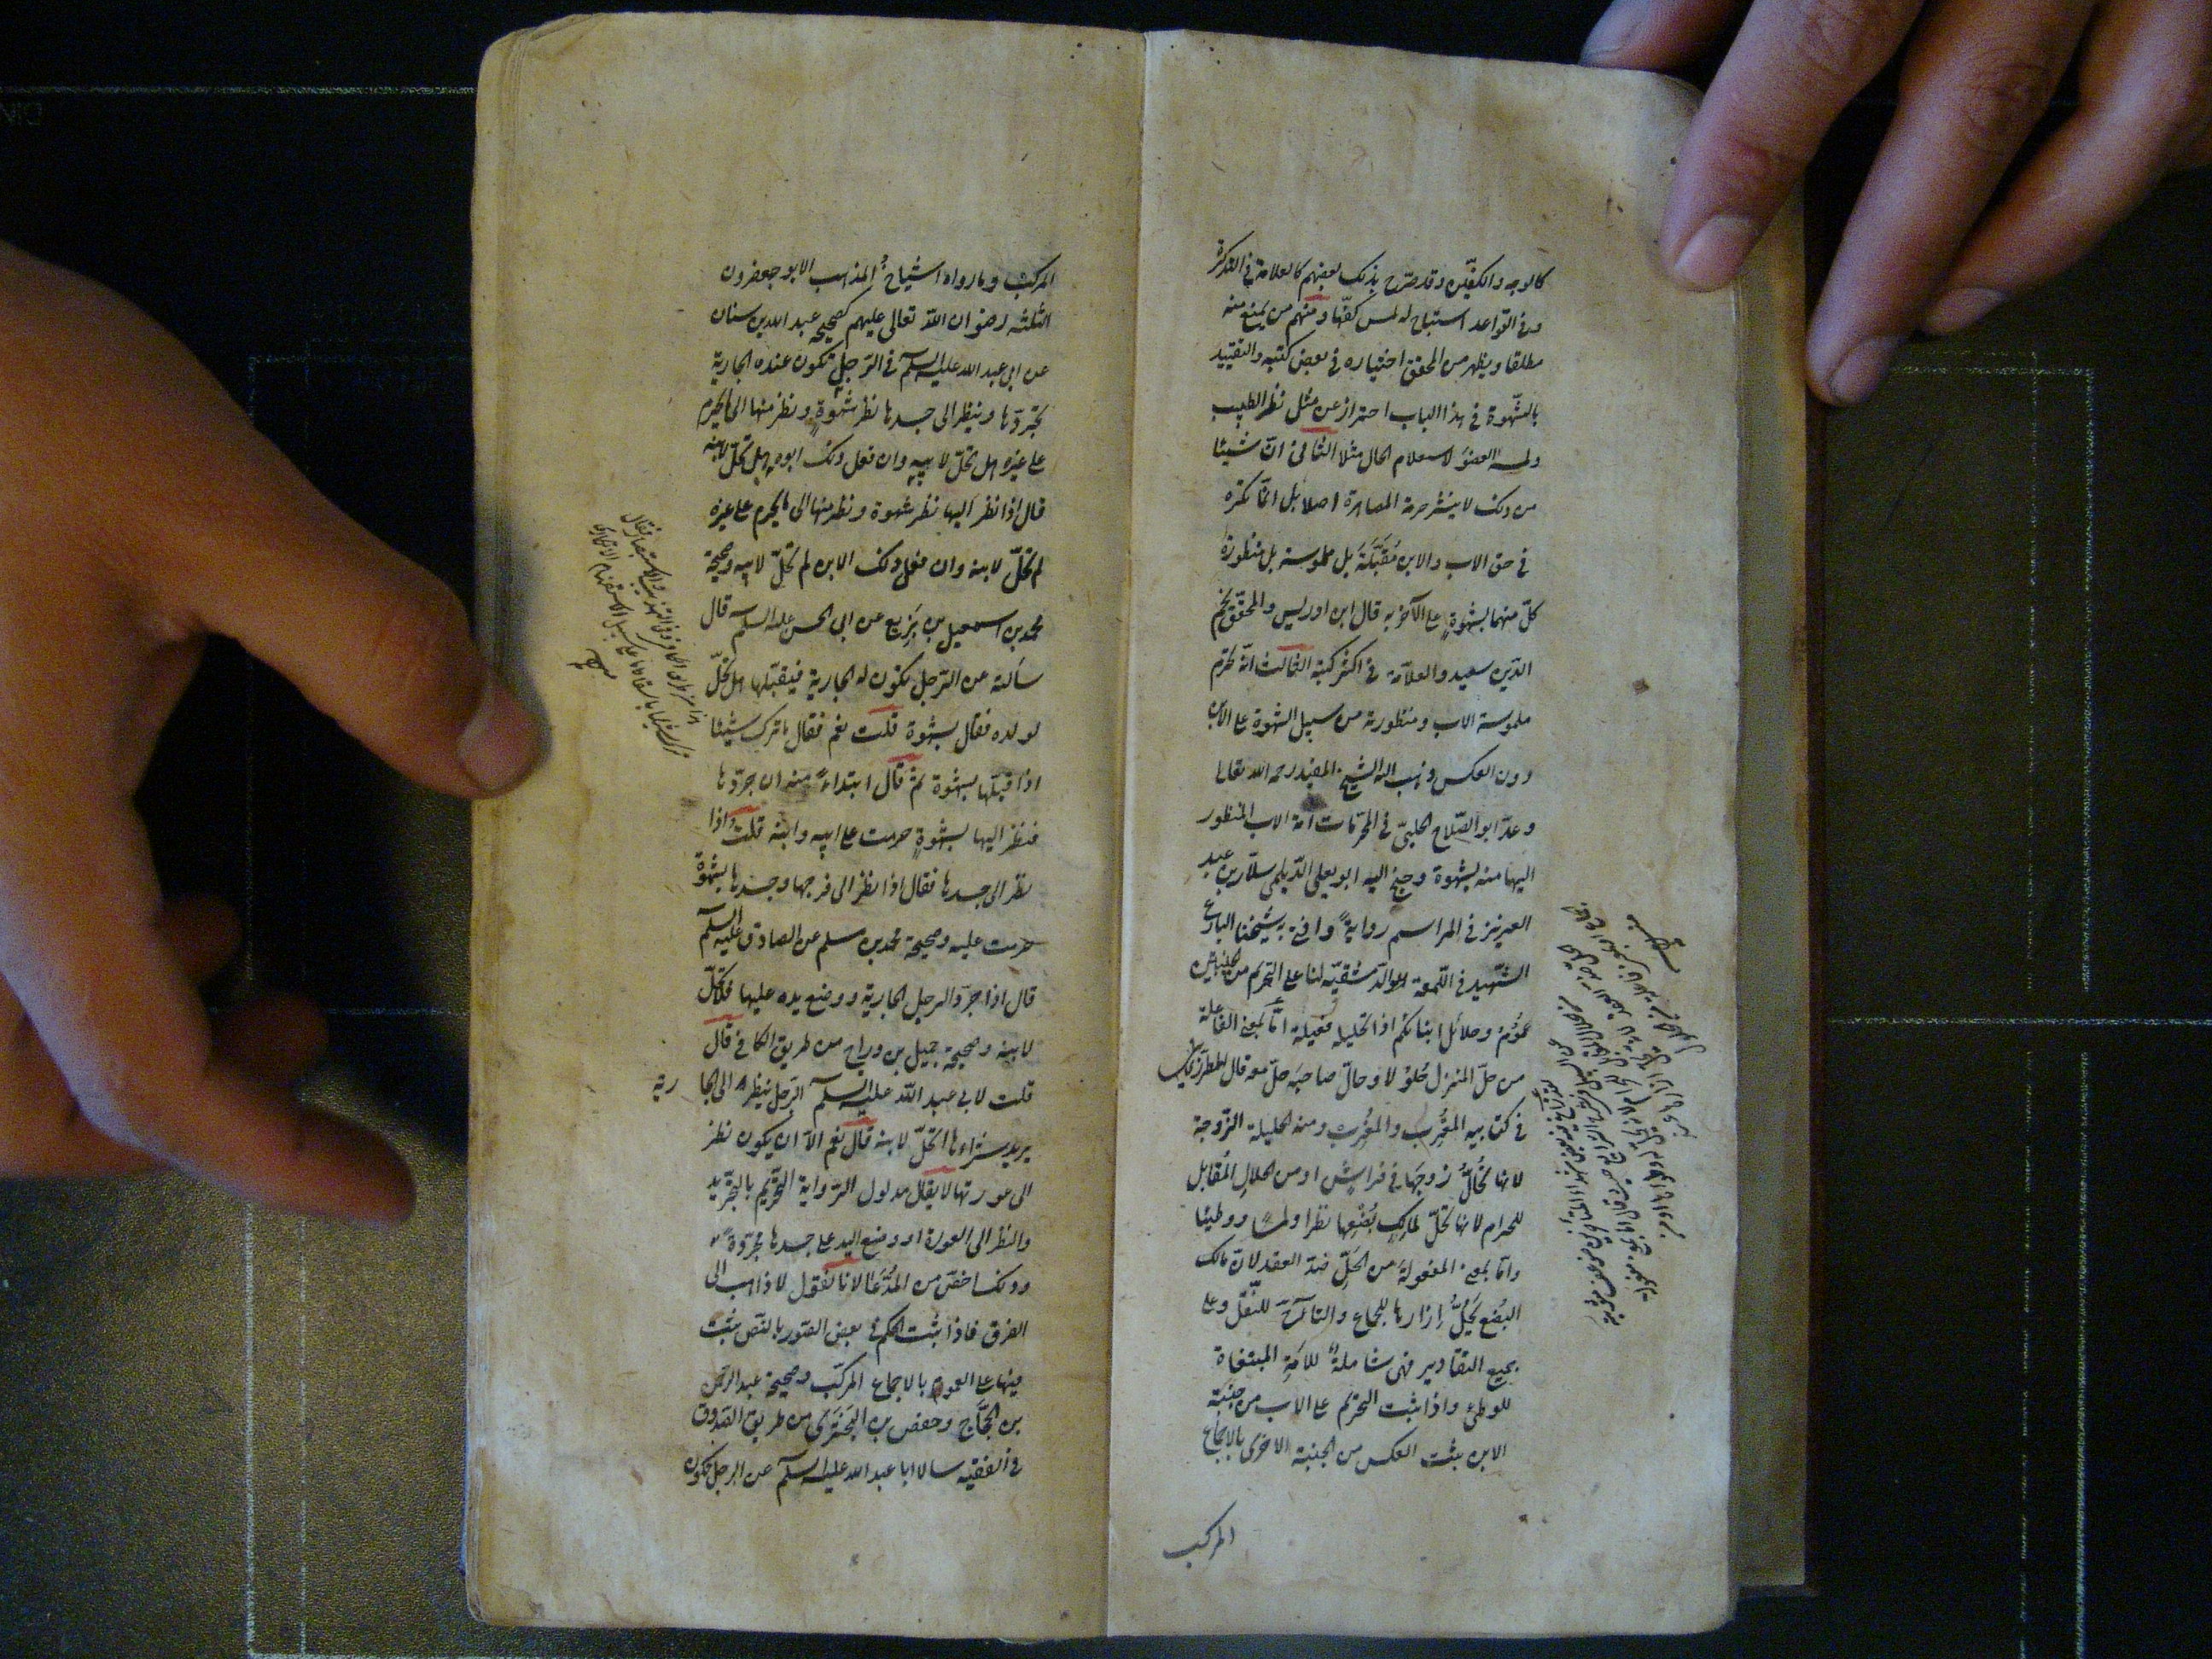 كالوجه والكفين وقد صرح بذلك بعضهم كالعلامة في التذكرة
وفي القواعد استباح له لمس كفها ومنهم من يمنع منه
مطلقا ويظهر من المحقق اختياره في بعض كتبه والتقييد
بالشهوة في هذا الباب احتراز عن مثل نظر الطبيب
ولمسه العضو لاستعلام الحال مثلا الثاني ان شيئا
من ذلك لا ينشر حرمة المصاهرة اصلا بل انما تكره
في حق الاب والابن مُقَبَّلَة بل ملموسة بل منظورة
كل منهما بشهوة على الآخر به قال ابن ادريس والمحقق نجم
الدين سعيد والعلامة في اكثر كتبه الثالث انه تحرم
ملموسة الاب ومنظورته من سبيل الشهوة على الابن
دون العكس ذهب اليه الشيخ المفيد رحمه الله تعالى
وعد ابو الصلاح الحلبي في المحرمات امة الاب المنظور
اليها منه بشهوة وجنح اليه ابو يعلى الديلمي سلار بن عبد
العزيز في المراسم رواية وافتى به شيخنا البارع
الشهيد في اللمعة الدمشقية لنا على التحريم من الجنبتين
عموم وحلائل ابنائكم اذ الحليلة فعيلة اما بمعنى الفاعلة
من حل المنزل حُلُولا وحالّ صاحبه حل معه قال المطرزي
في كتابيه المُعْرِب والمُغْرِب ومنه الحليلة الزوجة
لانها تُحَالُّ زوجَها في فراش او من الحلال المُقابل
للحرام لانها تحل لمالك بُضْعِها نظرا ولمسا ووطيئا
واما بمعنى المفعولة من الحَلّ ضد العقد لان مالك
البُضع يَحُلُّ اِزارها للجماع والتاء للنقل وعلى
جميع التقادير فهي شاملة للامة المبتغاة
للوطئ واذا ثبت التحريم على الاب من جنبة
الابن يثبت العكس من الجنبة الاخرى بالاجماع
المركب
المركب وما رواه اشياخ المذهب الابو جعفرون
الثلثة رضوان الله تعالى عليهم كصحيحة عبد الله بن سنان
عن ابي عبد الله عليه السلم في الرجل تكون عنده الجارية
يجردها وينظر الى جسدها نظر شهوة ونظر منها الى ما يحرم
على غيره هل تحل لابيه وان فعل ذلك ابوه هل تحل لابنه
قال اذا نظر اليها نظر شهوة ونظر منها الى ما يحرم على غيره
لم تحل لابنه وان فعل ذلك الابن لم تحل لابيه وصحيحة
محمد بن اسمعيل بن بزيع عن ابي الحسن عليه السلم قال
سألته عن الرجل تكون له الجارية فيقبلها هل تحل
لولده فقال بشهوة قلت نعم فقال ما ترك شيئا
اذا قبلها بشهوة ثم قال ابتداء منه ان جردها
فنظر اليها بشهوة حرمت على ابيه وابنه قلت واذا
نظر الى جسدها فقال اذا نظر الى فرجها وجسدها بشهوة
حرمت عليه وصحيحة محمد بن مسلم عن الصادق عليه السلم
قال اذا جرد الرجل الجارية ووضع يده عليها فلا تحل
لابنه وصحيحة جميل بن دراج من طريق الكافي قال
قلت لابي عبد الله عليه السلم الرجل ينظر الى الجا رية
يريد شراءها اتحل لابنه قال نعم الا ان يكون نظر
الى عورتها لا يقال مدلول الرواية التحريم بالتجريد
والنظر الى العورة او وضع اليد على جسدها مجردة
وذلك اخص من المُدَّعَا لانا نقول لا ذاهب الى
الفرق فاذا ثبت الحكم في بعض الصور بالنص يثبت
فيها على العموم بالاجماع المركب وصحيحة عبد الرحمن
بن الحجاج وحفص بن البَخْتَري من طريق الصدوق
في الفقيه سالا ابا عبد الله عليه السلم عن الرجل تكون